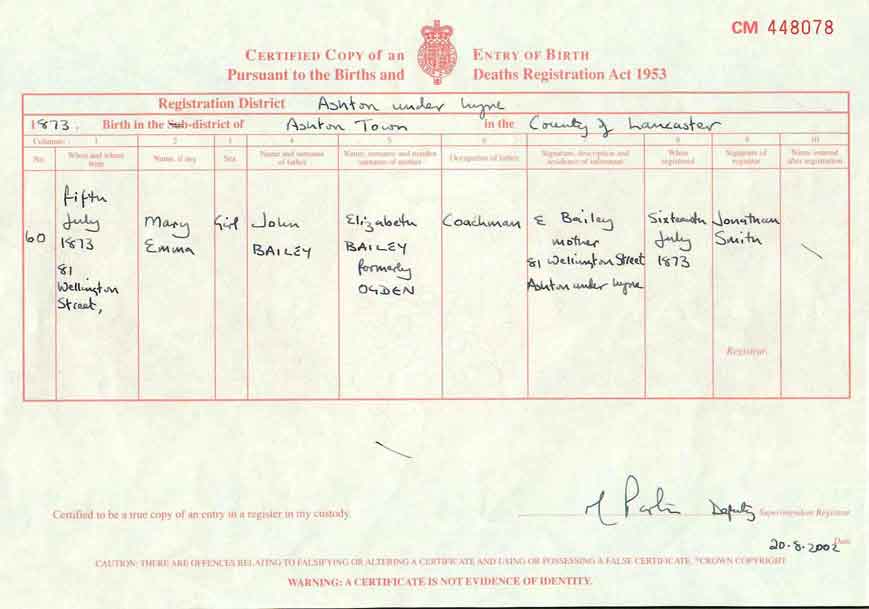 CM 448078
CERTIFIED COPY of an ENTRY OF BIRTH
Pursuant to the Births and Deaths Registration Act 1953
Registration District Ashton under Lyne
1873. Birth in the Sub-district of Ashton Town in the County of Lancaster
Columns:- 1 2 3 4 5 6 7 8 9 10
No. When and where born Name, if any Sex Name and surname of father Name, surname and maiden surname of mother Occupation of father Signature, description and residence of informant When registered Signature of registrar Name entered after registration
60
Fifth
July
1873
81
Wellington
Street,
Mary
Emma
Girl
John
BAILEY
Elizabeth
BAILEY
formerly
OGDEN
Coachman
E Bailey
mother
81 Wellington Street
Ashton under Lyne
Sixteenth
July
1873
Jonathan
Smith
Registrar.
Certified to be a true copy of an entry in a register in my custody.
Deputy Superintendent Registrar
20-8-2002 Date
CAUTION: THERE ARE OFFENCES RELATING TO FALSIFYING OR ALTERING A CERTIFICATE AND USING OR POSSESSING A FALSE CERTIFICATE. ©CROWN COPYRIGHT
WARNING: A CERTIFICATE IS NOT EVIDENCE OF IDENTITY.